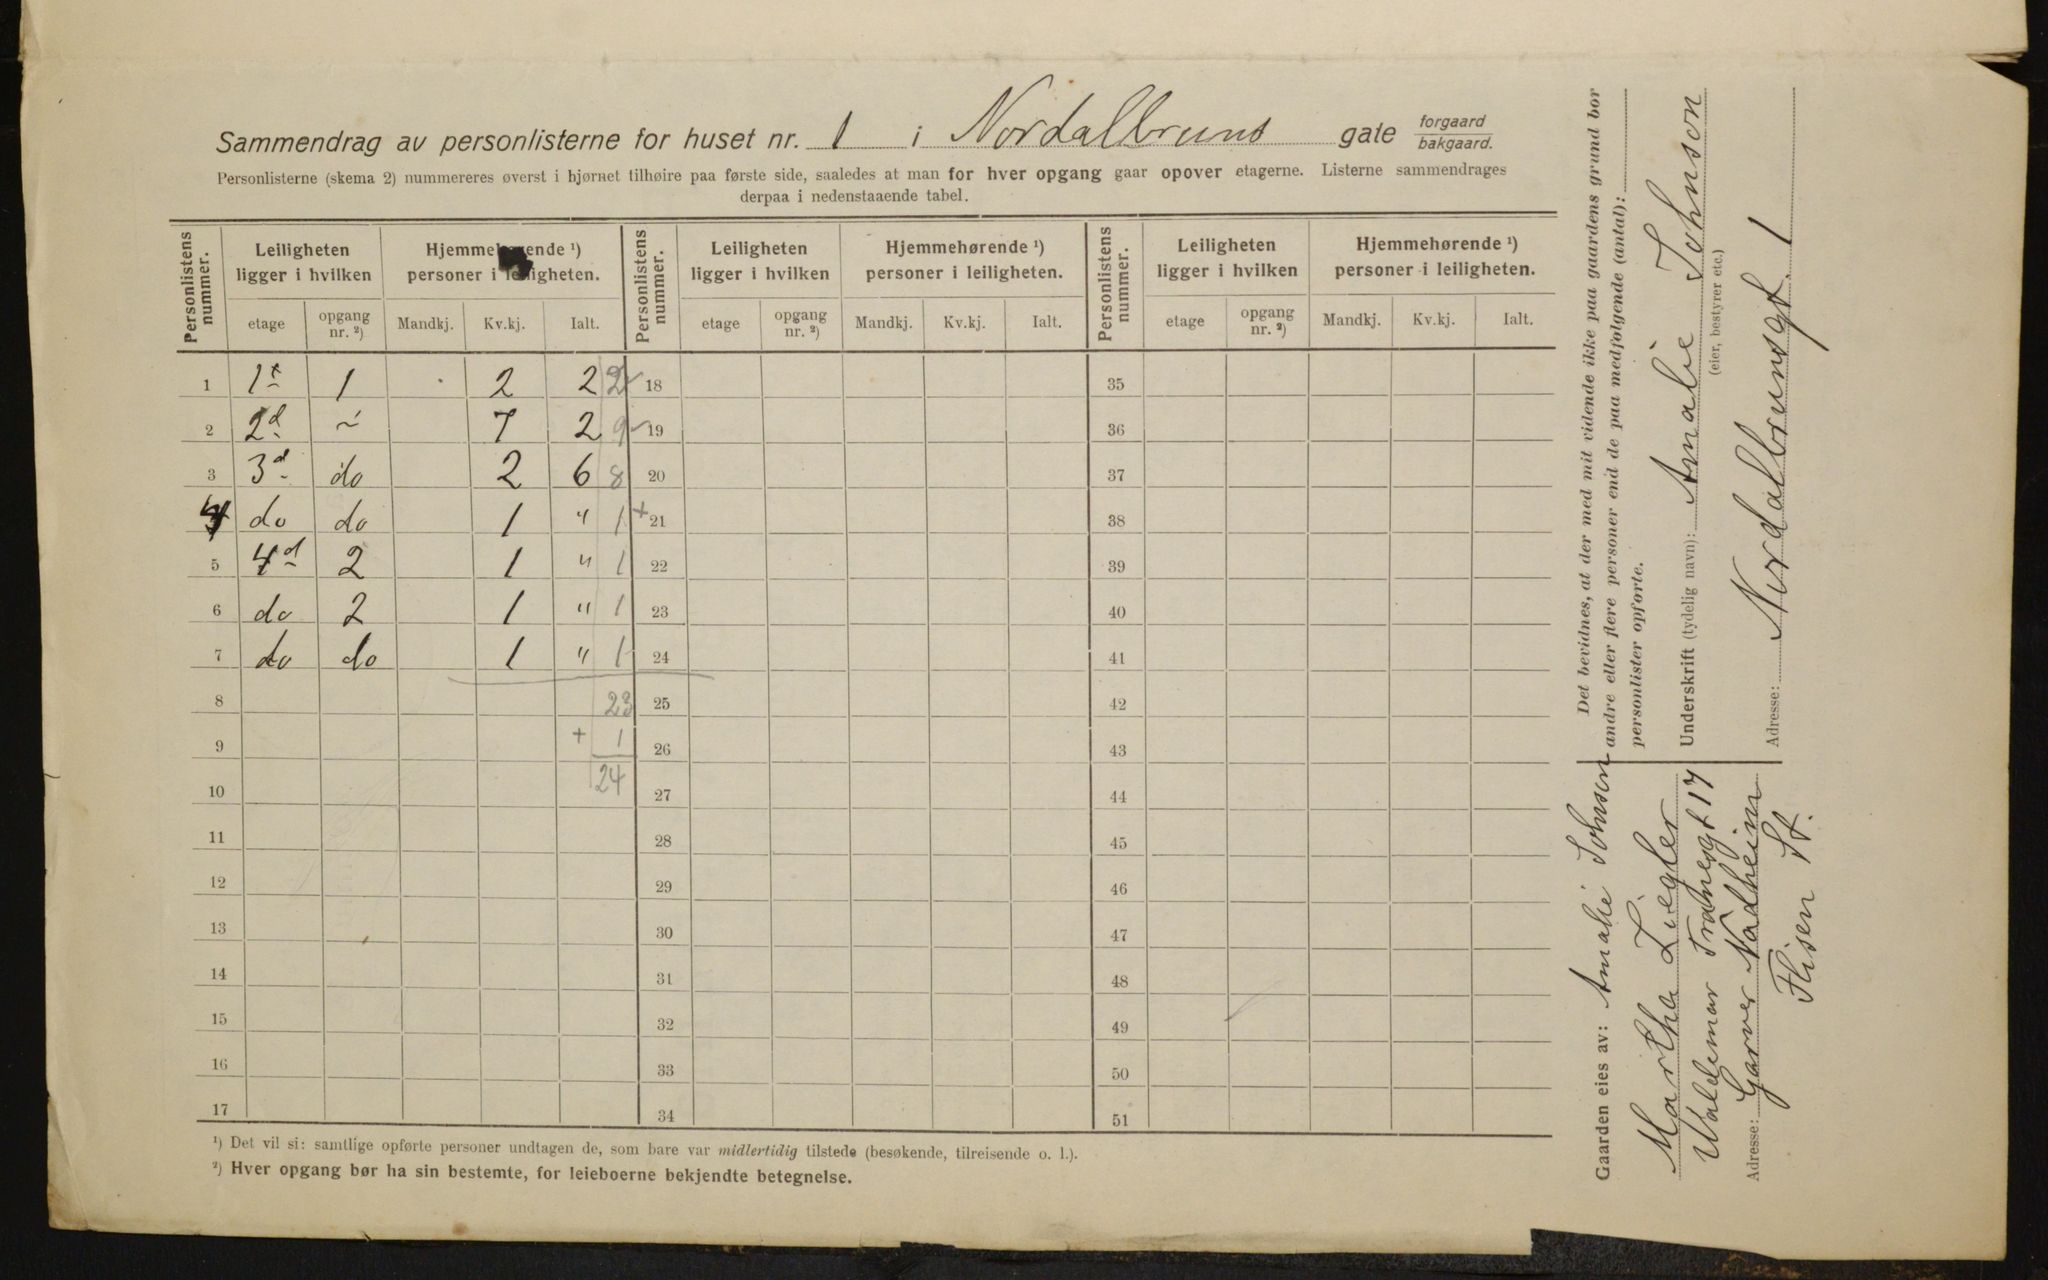 Sammendrag av personlisterne for huset nr. 1 i Nordalbruns gate forgaard bakgaard.
Personlisterne (skema 2) nummereres øverst i hjørnet tilhøire paa første side, saaledes at man for hver opgang gaar opover etagerne. Listerne sammendrages
derpaa i nedenstaaende tabel.
Personlistens nummer. Leiligheten ligger i hvilken Hjemmehørende ¹) personer i leiligheten. Personlistens nummer. Leiligheten ligger i hvilken Hjemmehørende ¹) personer i leiligheten. Personlistens nummer. Leiligheten ligger i hvilken Hjemmehørende ¹) personer i leiligheten.
etage opgang nr. ²) Mandkj. Kv.kj. Ialt. etage opgang nr. ²) Mandkj. Kv.kj. Ialt. etage opgang nr. ²) Mandkj. Kv.kj. Ialt.
1 1st 1 2 2 2 18 35
2 2d ~ 7 2 9 19 36
3 3d do 2 6 8 20 37
4 do do 1 " 1 + 21 38
5 4d 2 1 " 1 22 39
6 do 2 1 " 1 23 40
7 do do 1 " 1 24 41
8 23 25 42
9 + 1 26 43
10 24 27 44
11 28 45
12 29 46
13 30 47
14 31 48
15 32 49
16 33 50
17 34 51
¹) Det vil si: samtlige opførte personer undtagen de, som bare var midlertidig tilstede (besøkende, tilreisende o. l.).
²) Hver opgang bør ha sin bestemte, for leieboerne bekjendte betegnelse.
Det bevidnes, at der med mit vidende ikke paa gaardens grund bor
andre eller flere personer end de paa medfølgende (antal):
personlister opførte.
Underskrift (tydelig navn): Amalie Johnson
(eier, bestyrer etc.)
Adresse: Nordalbrunsgt. 1
Gaarden eies av: Amalie Johnsen
Martha Ziegler
Waldemar Tranesgt 17
Adresse: Garver Nadheim
Flisen St.